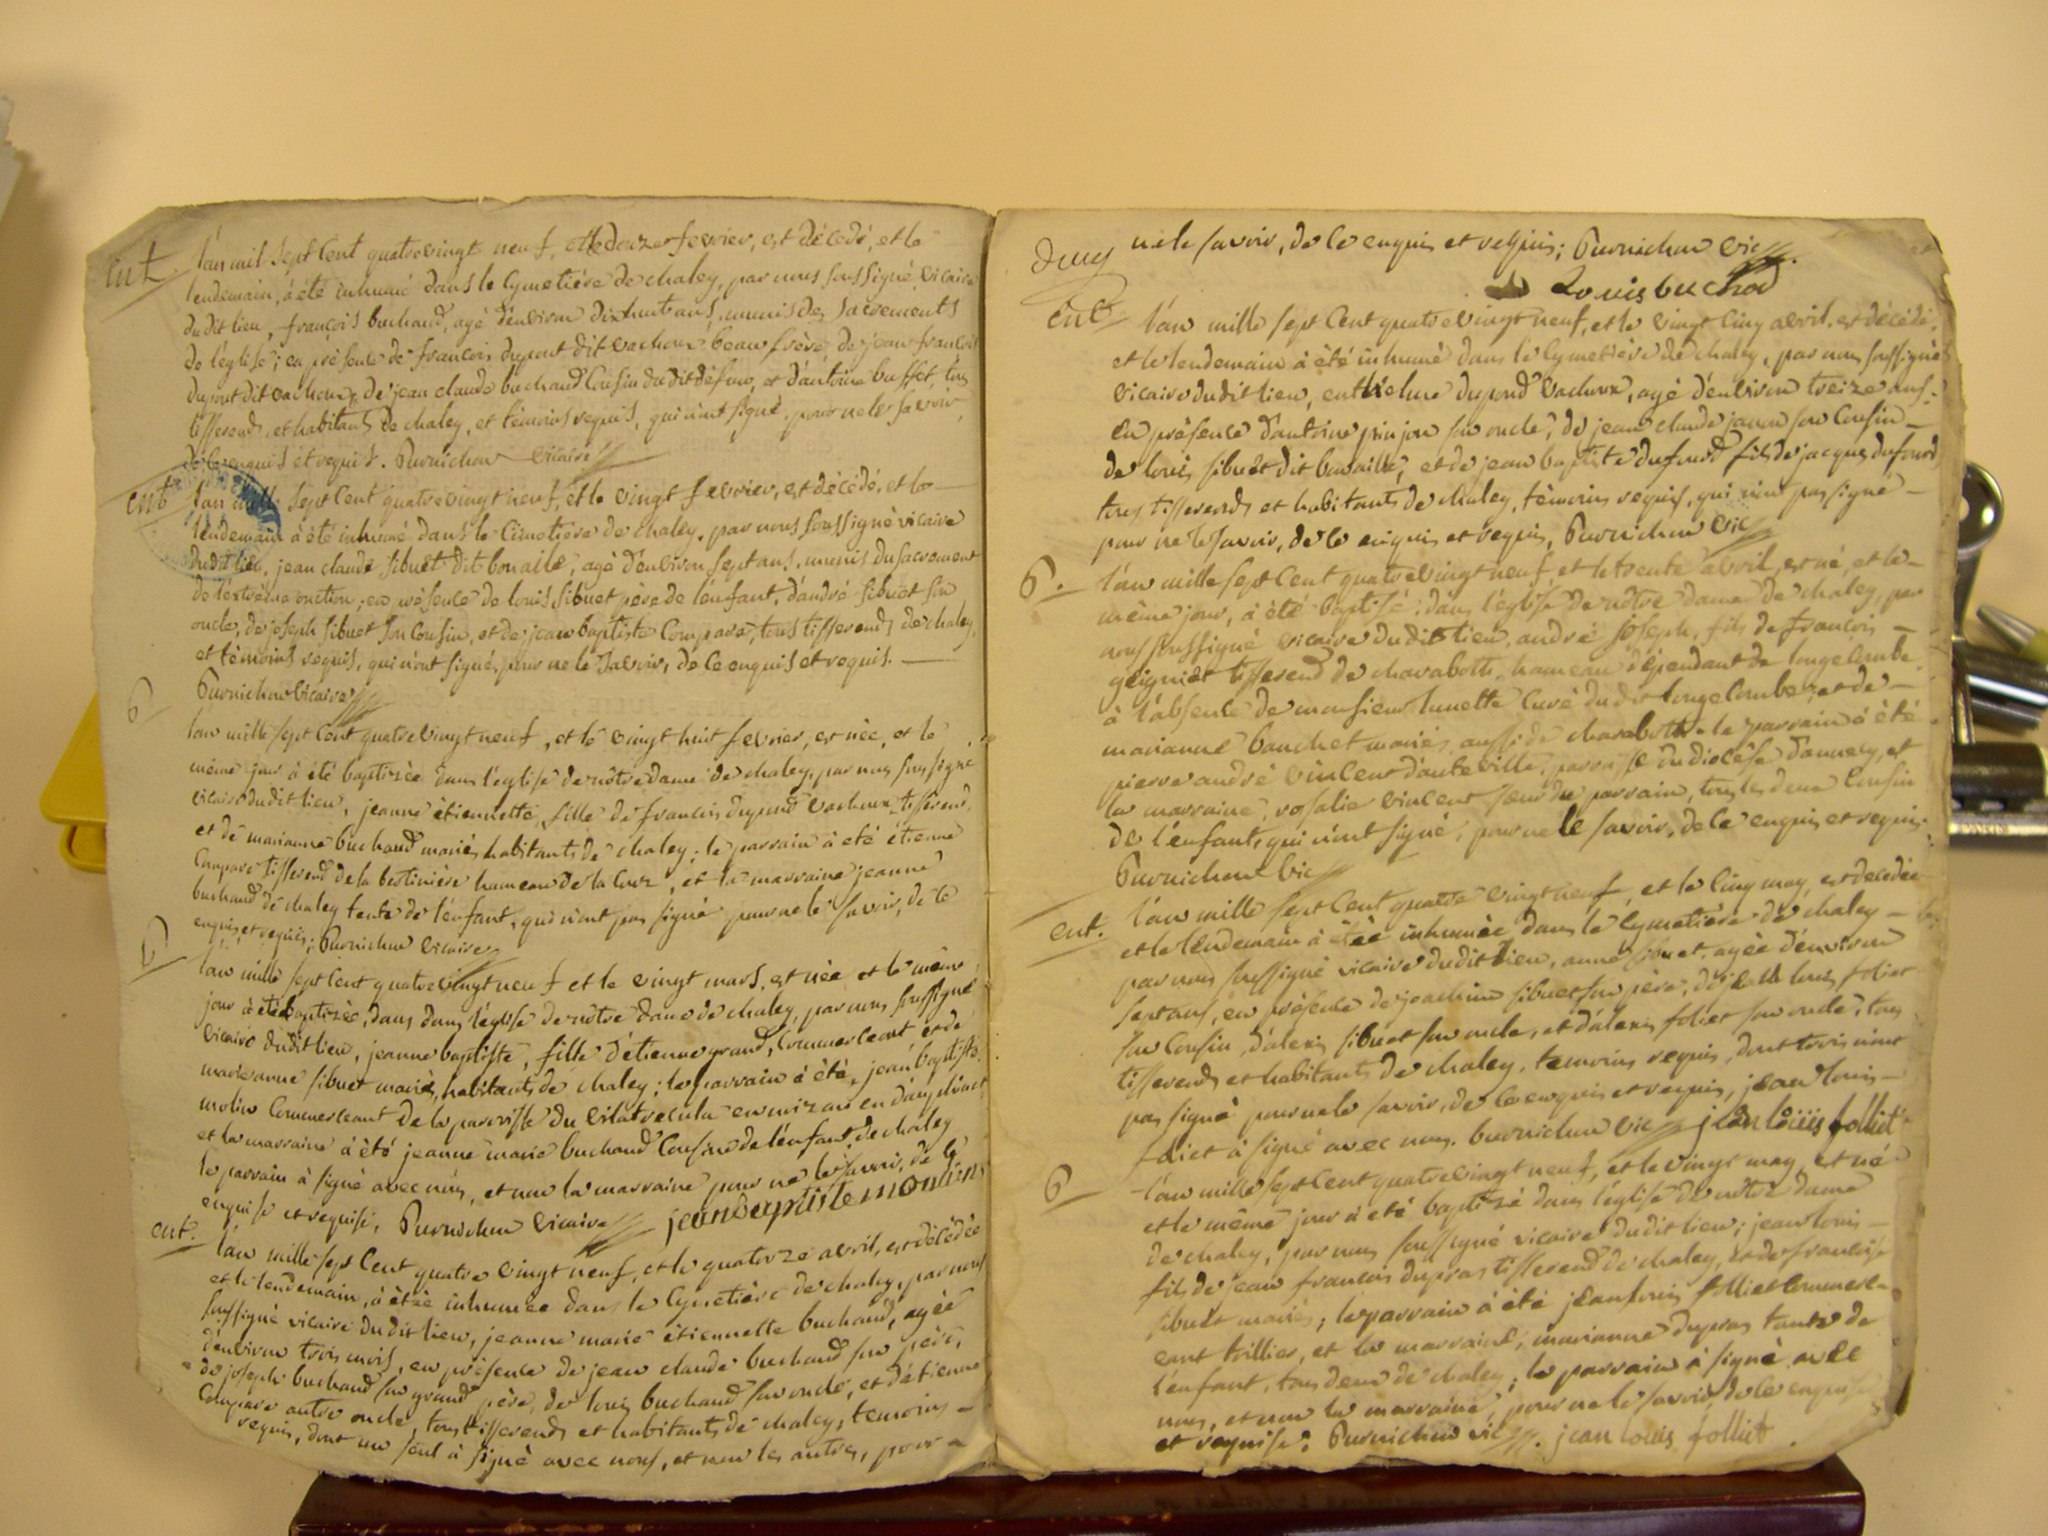 ent
l'an mil sept cent quatrevingt neuf, et le douze fevrier, est décédé, et le
lendemain, à été inhumé dans le cymetière de chaley, par nous soussigné vicaire
dudit lieu, françois buchaud, agé d'environ dixhuit ans, munis des sacrements
de l'église; en présence de françois dupont dit vachoux beau frère, de jean françois
dupont dit vachoux, de jean claude buchaud cousin du dit défunt, et d'antoine buffet, tous
tisserends, et habitants de chaley, et témoins requis, qui n'ont signé, pour ne le savoir,
de ce enquis et requis. Burnichon vicaire
ent
l'an mille sept cent quatrevingt neuf, et le vingt fevrier, est décédé, et le
lendemain à été inhumé dans le cimetière de chaley, par nous soussigné vicaire
dudit lieu, jean claude sibuet dit bonaille, agé d'environ sept ans, munis du sacrement
de l'extrême onction; en présence de louis sibuet père de l'enfant, d'andré sibuet son
oncle, de joseph sibuet son cousin, et de jean baptiste compare, tous tisserends de chaley,
et témoins requis, qui n'ont signé, pour ne le savoir, de ce enquis et requis.
Burnichon vicaire
b
l'an mille sept cent quatrevingt neuf, et le vingt huit fevrier, est née, et le
même jour à été baptisée dans l'eglise de nôtre dame de chaley, par nous soussigné
vicaire dudit lieu, jeanne étiennette, fille de françois dupond vachoux tisserend,
et de marianne buchaud mariés habitants de chaley; le parrain à été étienne
compare tisserend de la bertinière hameau de la cour, et la marraine jeanne
buchaud de chaley tante de l'enfant, qui n'ont pas signé pour ne le savoir, de ce
enquis et requis; Burnichon vicaire
b
l'an mille sept cent quatrevingt neuf et le vingt mars, est née et le même
jour à été baptisée, dans dans l'église de nôtre dame de chaley, par nous soussigné
vicaire dudit lieu, jeanne baptiste, fille d'étienne grand, commerceant et de
marieanne sibuet mariés, habitants de chaley; le parrain à été, jean baptiste
molin commerceant de la paroisse du
et la marraine à été jeanne marie buchaud cousine de l'enfant, de chaley
le parrain à signé avec nous, et non la marraine pour ne le savoir, de ce
enquise et requise, Burnichon vicaire jean baptiste moulin
ent.
l'an mille sept cent quatre vingt neuf, et le quatorze avril, est décédée
et le lendemain, à étée inhumée dans le cymetière de chaley, par nous
soussigné vicaire dudit lieu, jeanne marie étiennette buchaud, agée
d'environ trois mois, en présence de jean claude buchaud son père,
de joseph buchaud son grand père, de louis buchaud son oncle, et d'étienne
compare autre oncle, tous tisserends et habitants de chaley, temoins
requis, dont un seul à signé avec nous, et non les autres, pour
deux
ne le savoir, de ce enquis et requis; Burnichon vic
Louis buchod
ent
l'an mille sept cent quatrevingt neuf, et le vingt cinq avril, est décédé,
et le lendemain à été inhumé dans le cymetière de chaley, par nous soussigné
vicaire dudit lieu, enthelme dupond vachoux, agé d'environ treize ans,
en présence d'antoine pinjon son oncle, de jean claude janon son cousin
de louis sibuet dit bonaille, et de jean baptiste dufourd fils de jacques dufourd
tous tisserends et habitants de chaley, témoins requis, qui n'ont pas signé
pour ne le savoir, de ce enquis et requis, Burnichon vic
b.
l'an mille sept cent quatrevingt neuf, et le trente avril, est né, et le
même jour, à été baptisé, dans l'église de nôtre dame de chaley, par
nous soussigné vicaire dudit lieu, andré joseph, fils de françois
guignet tisserend de charabotte, hameau dépendant de longecombe
à l'absence de monsieur lunette curé dudit longecombe, et de
marianne bouchet mariés, aussi de charabotte. le parrain à été
pierre andré vincent d'auteville, paroisse du diocèse d'annecy, et
la marraine, rosalie vincent sœur du parrain, tous les deux cousin
de l'enfant, qui n'ont signé, pour ne le savoir, de ce enquis et requis.
Burnichon vic
ent.
l'an mille sept cent quatre vingt neuf, et le cinq may, est décédée
et le lendemain à étée inhumée dans le cymetière de chaley
par nous soussigné vicaire dudit lieu, anne sibuet, agée d'environ
sept ans, en présence de joachim sibuet son père, de jean louis foliet
son cousin, d'alexis sibuet son oncle, et d'alexis foliet son oncle, tous
tisserends et habitants de chaley, temoins requis, dont trois n'ont
pas signé pour ne le savoir, de ce enquis et requis, jean louis
foliet à signé avec nous. burnichon vic jean louis folliet
b
l'an mille sept cent quatrevingt neuf, et le vingt may, est né
et le même jour à été baptisé dans l'église de nôtre dame
de chaley, par nous soussigné vicaire dudit lieu; jean louis
fils de jean françois dupras tisserend de chaley, et de françoise
sibuet mariés; le parrain à été jean louis folliet commerce-
eant toillier, et la marraine, marianne dupras tante de
l'enfant, tous deux de chaley; le parrain à signé avec
nous, et non la marraine, pour ne le savoir, de ce enquise
et requise. Burnichon vic. jean louis folliet.